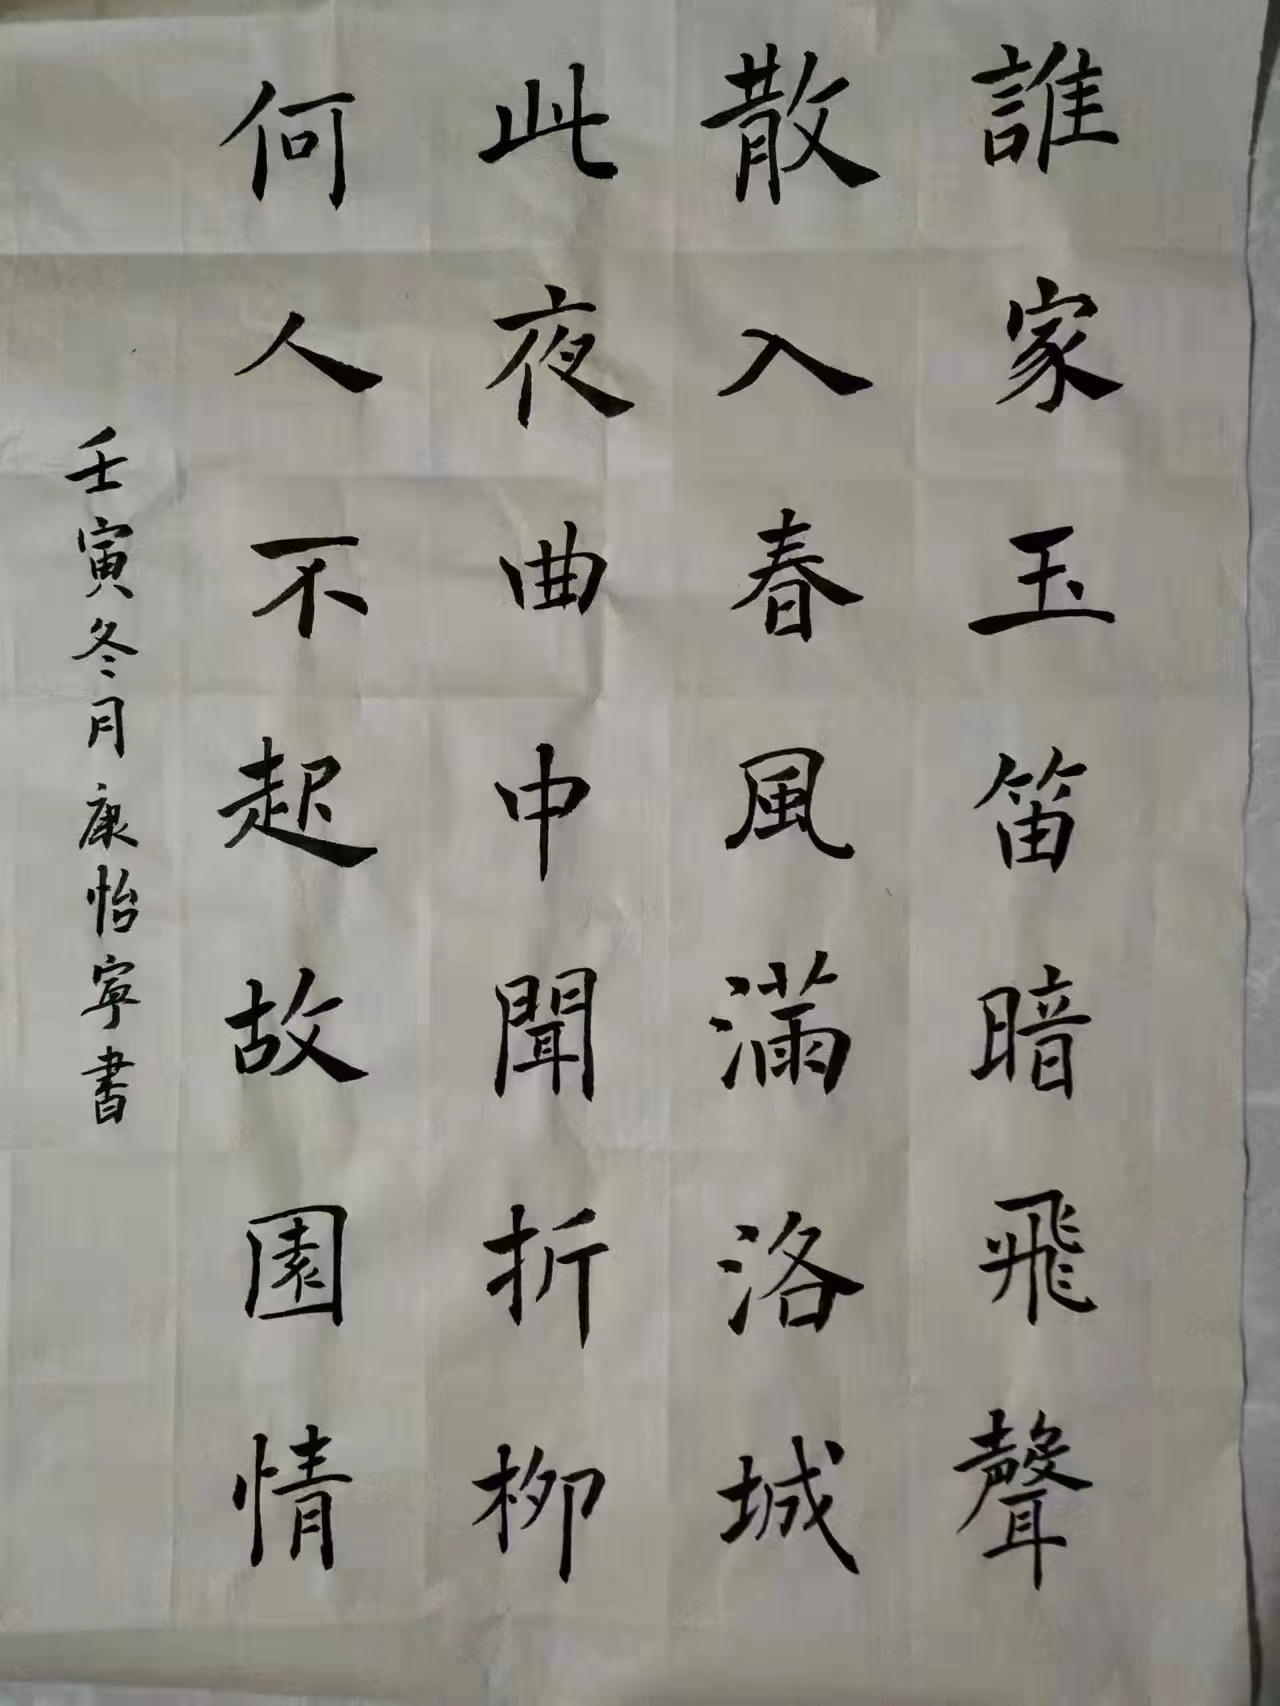 誰家玉笛暗飛聲
散入春風滿洛城
此夜曲中聞折柳
何人不起故園情
壬寅冬月康怡寧書